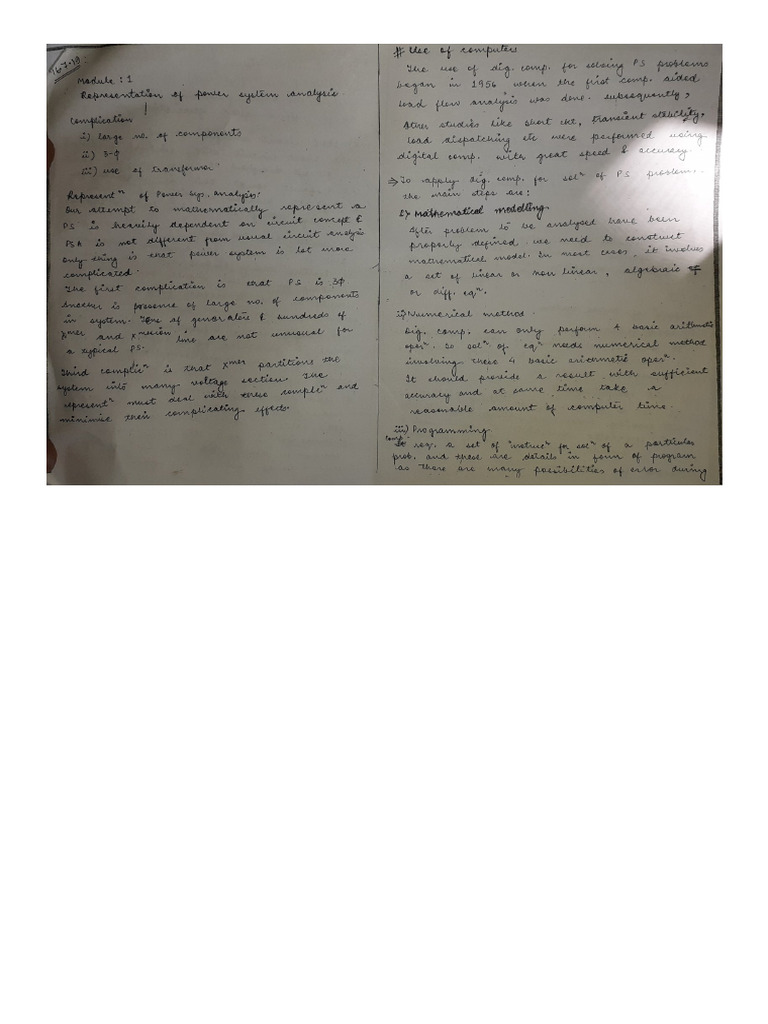 16-7-19
Module : 1
Representation of power system analysis
Complication
i) large no. of components
ii) 3-ϕ
iii) use of transformer
Representⁿ of Power sys. analysis:
Our attempt to mathematically represent a
PS is heavily dependent on circuit concept &
PSA is not different from usual circuit analysis
only thing is that power system is lot more
complicated.
The first complication is that PS is 3ϕ
Another is presence of large no. of components
in system. Tens of generators & hundreds of
Xmer and Xmission line are not unusual for
a typical PS.
Third complicⁿ is that Xmer partitions the
system into many voltage section. The
representⁿ must deal with these complicⁿ and
minimise their complicating effects.
# Use of computers
The use of dig. comp. for solving PS problems
began in 1956 when the first comp. aided
load flow analysis was done. subsequently,
Other studies like short ckt, transient stability,
load dispatching etc were performed using
digital comp. with great speed & accuracy.
⇒ To apply dig. comp. for solⁿ of PS problem,
the main steps are:
i) Mathematical modelling
After problem to be analysed have been
properly defined. we need to construct
mathematical model. In most cases, it involves
a set of linear or non linear, algebraic
or diff. eqⁿ.
ii) Numerical method
Dig. comp. can only perform 4 basic arithmetic
operⁿ. So solⁿ of eqⁿ needs numerical method
involving these 4 basic arithmetic operⁿ.
It should provide a result with sufficient
accuracy and at same time take a
reasonable amount of computer time.
iii) Programming
Comp. req. a set of instrucⁿ for solⁿ of a particular
prob. and these are details in form of program
as there are many possibilities of error during